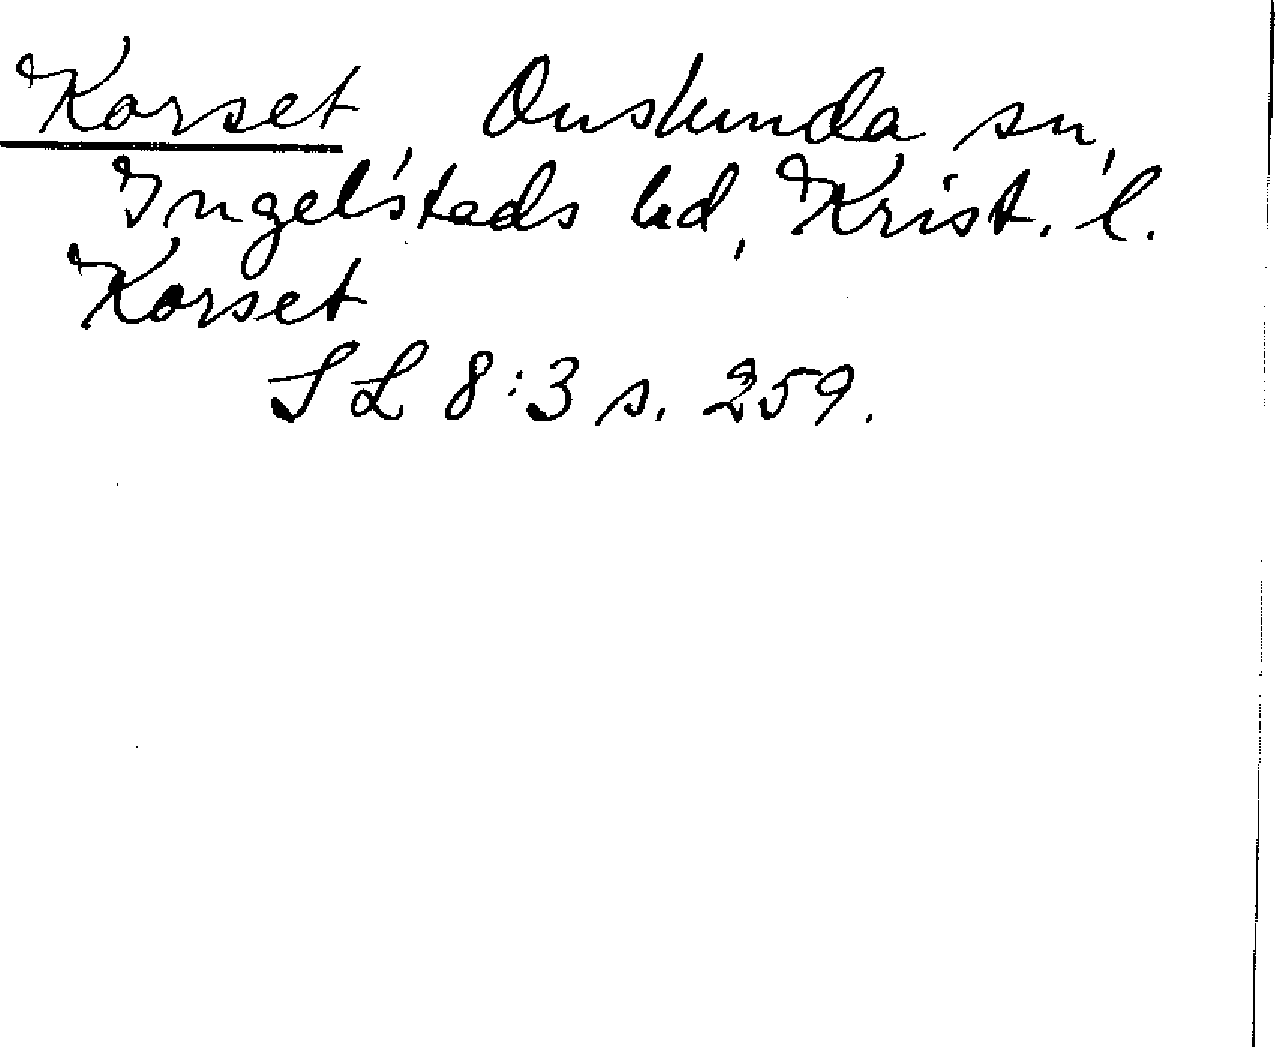 Korset, Onslunda sn,
Ingelstads hd, Krist. l.
Korset
SL 8:3 s. 259.